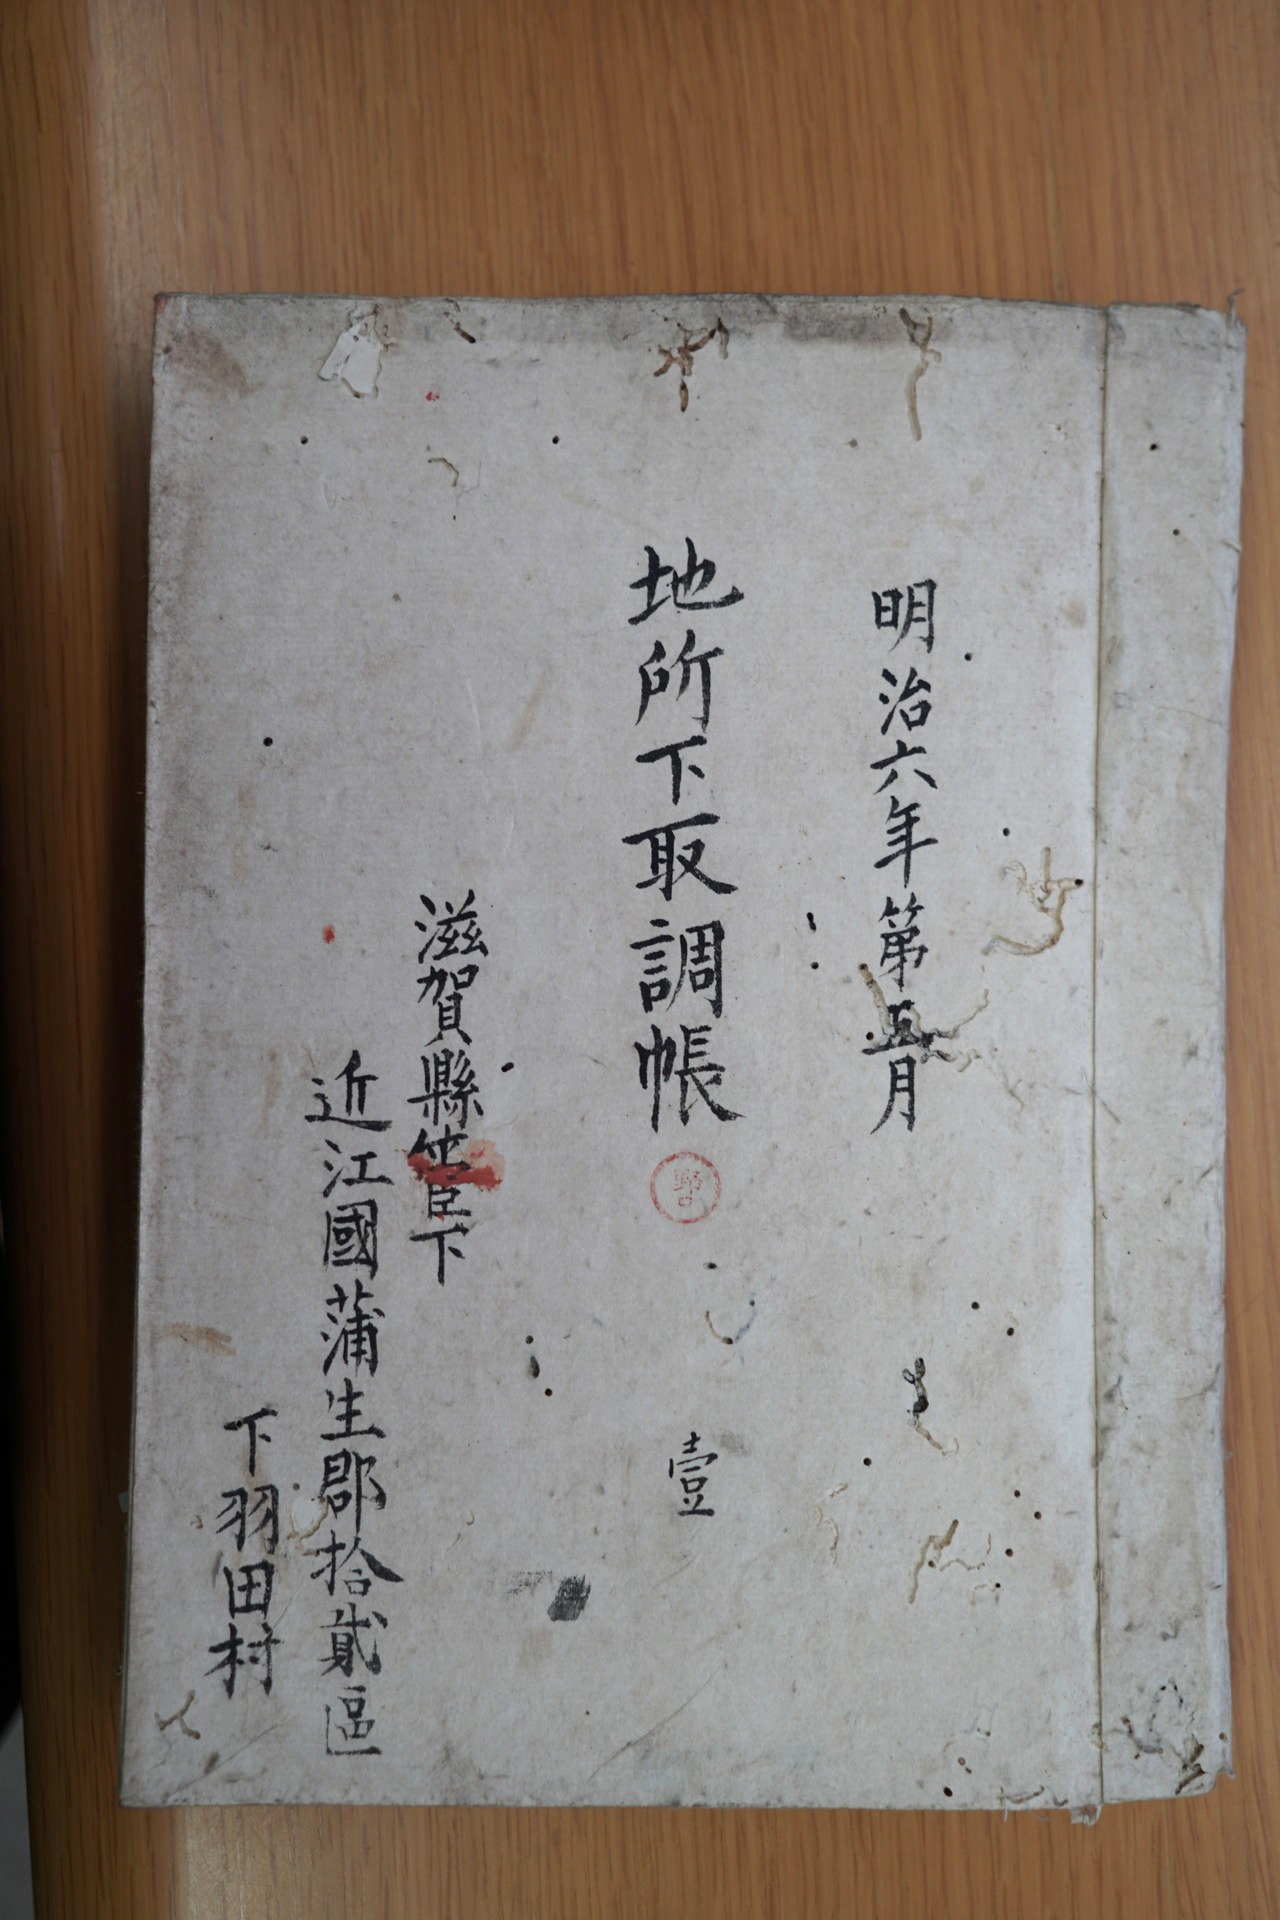 明治六年第五月
地所下取調帳
壹
滋賀縣管下
近江國蒲生郡拾貳區
下羽田村